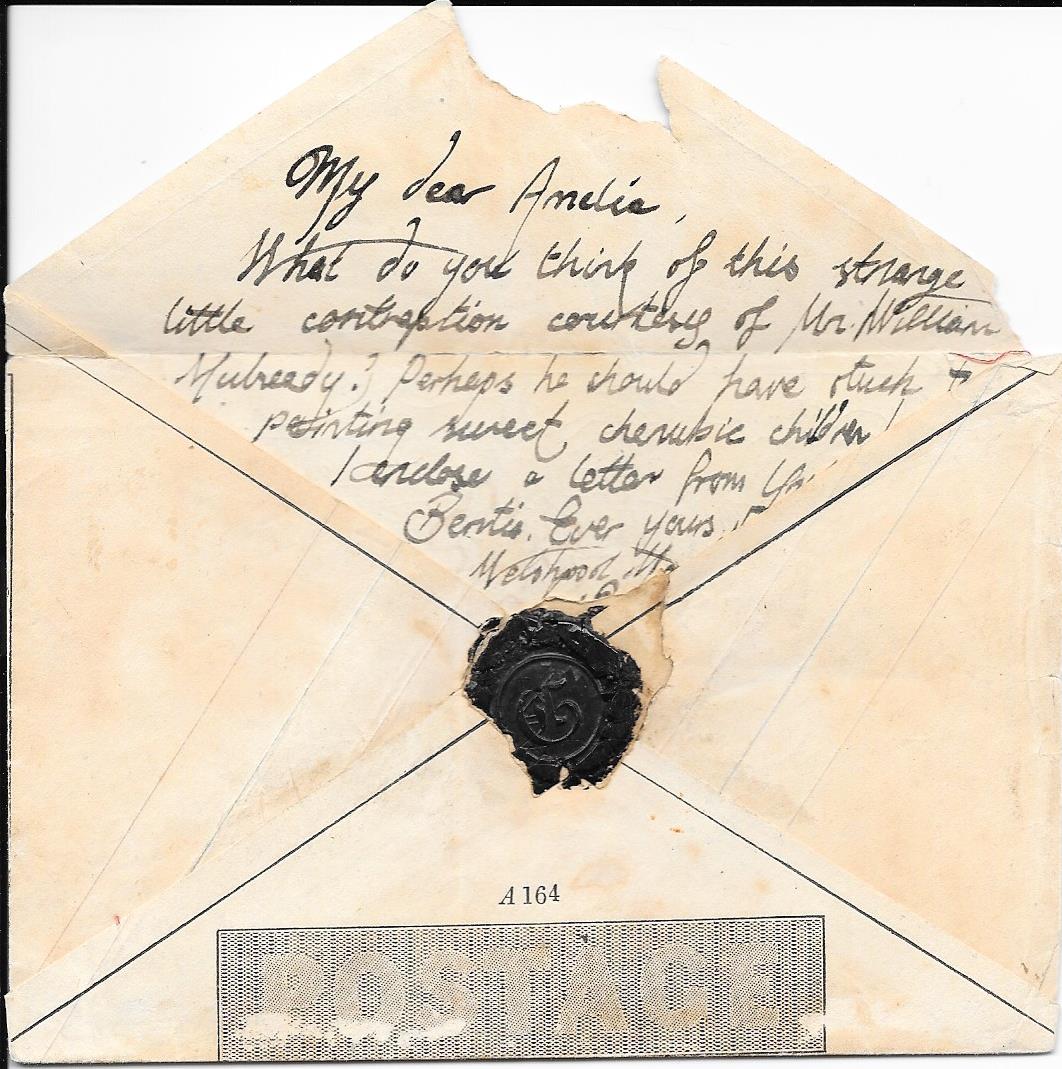 My dear Amelia,
What do you think of this strange
little contraption courtesy of Mr. William
Mulready? Perhaps he should have stuck t
painting sweet, cherubic children!
I enclose a letter from
Bertie. Ever yours,
A 164
POSTAGE